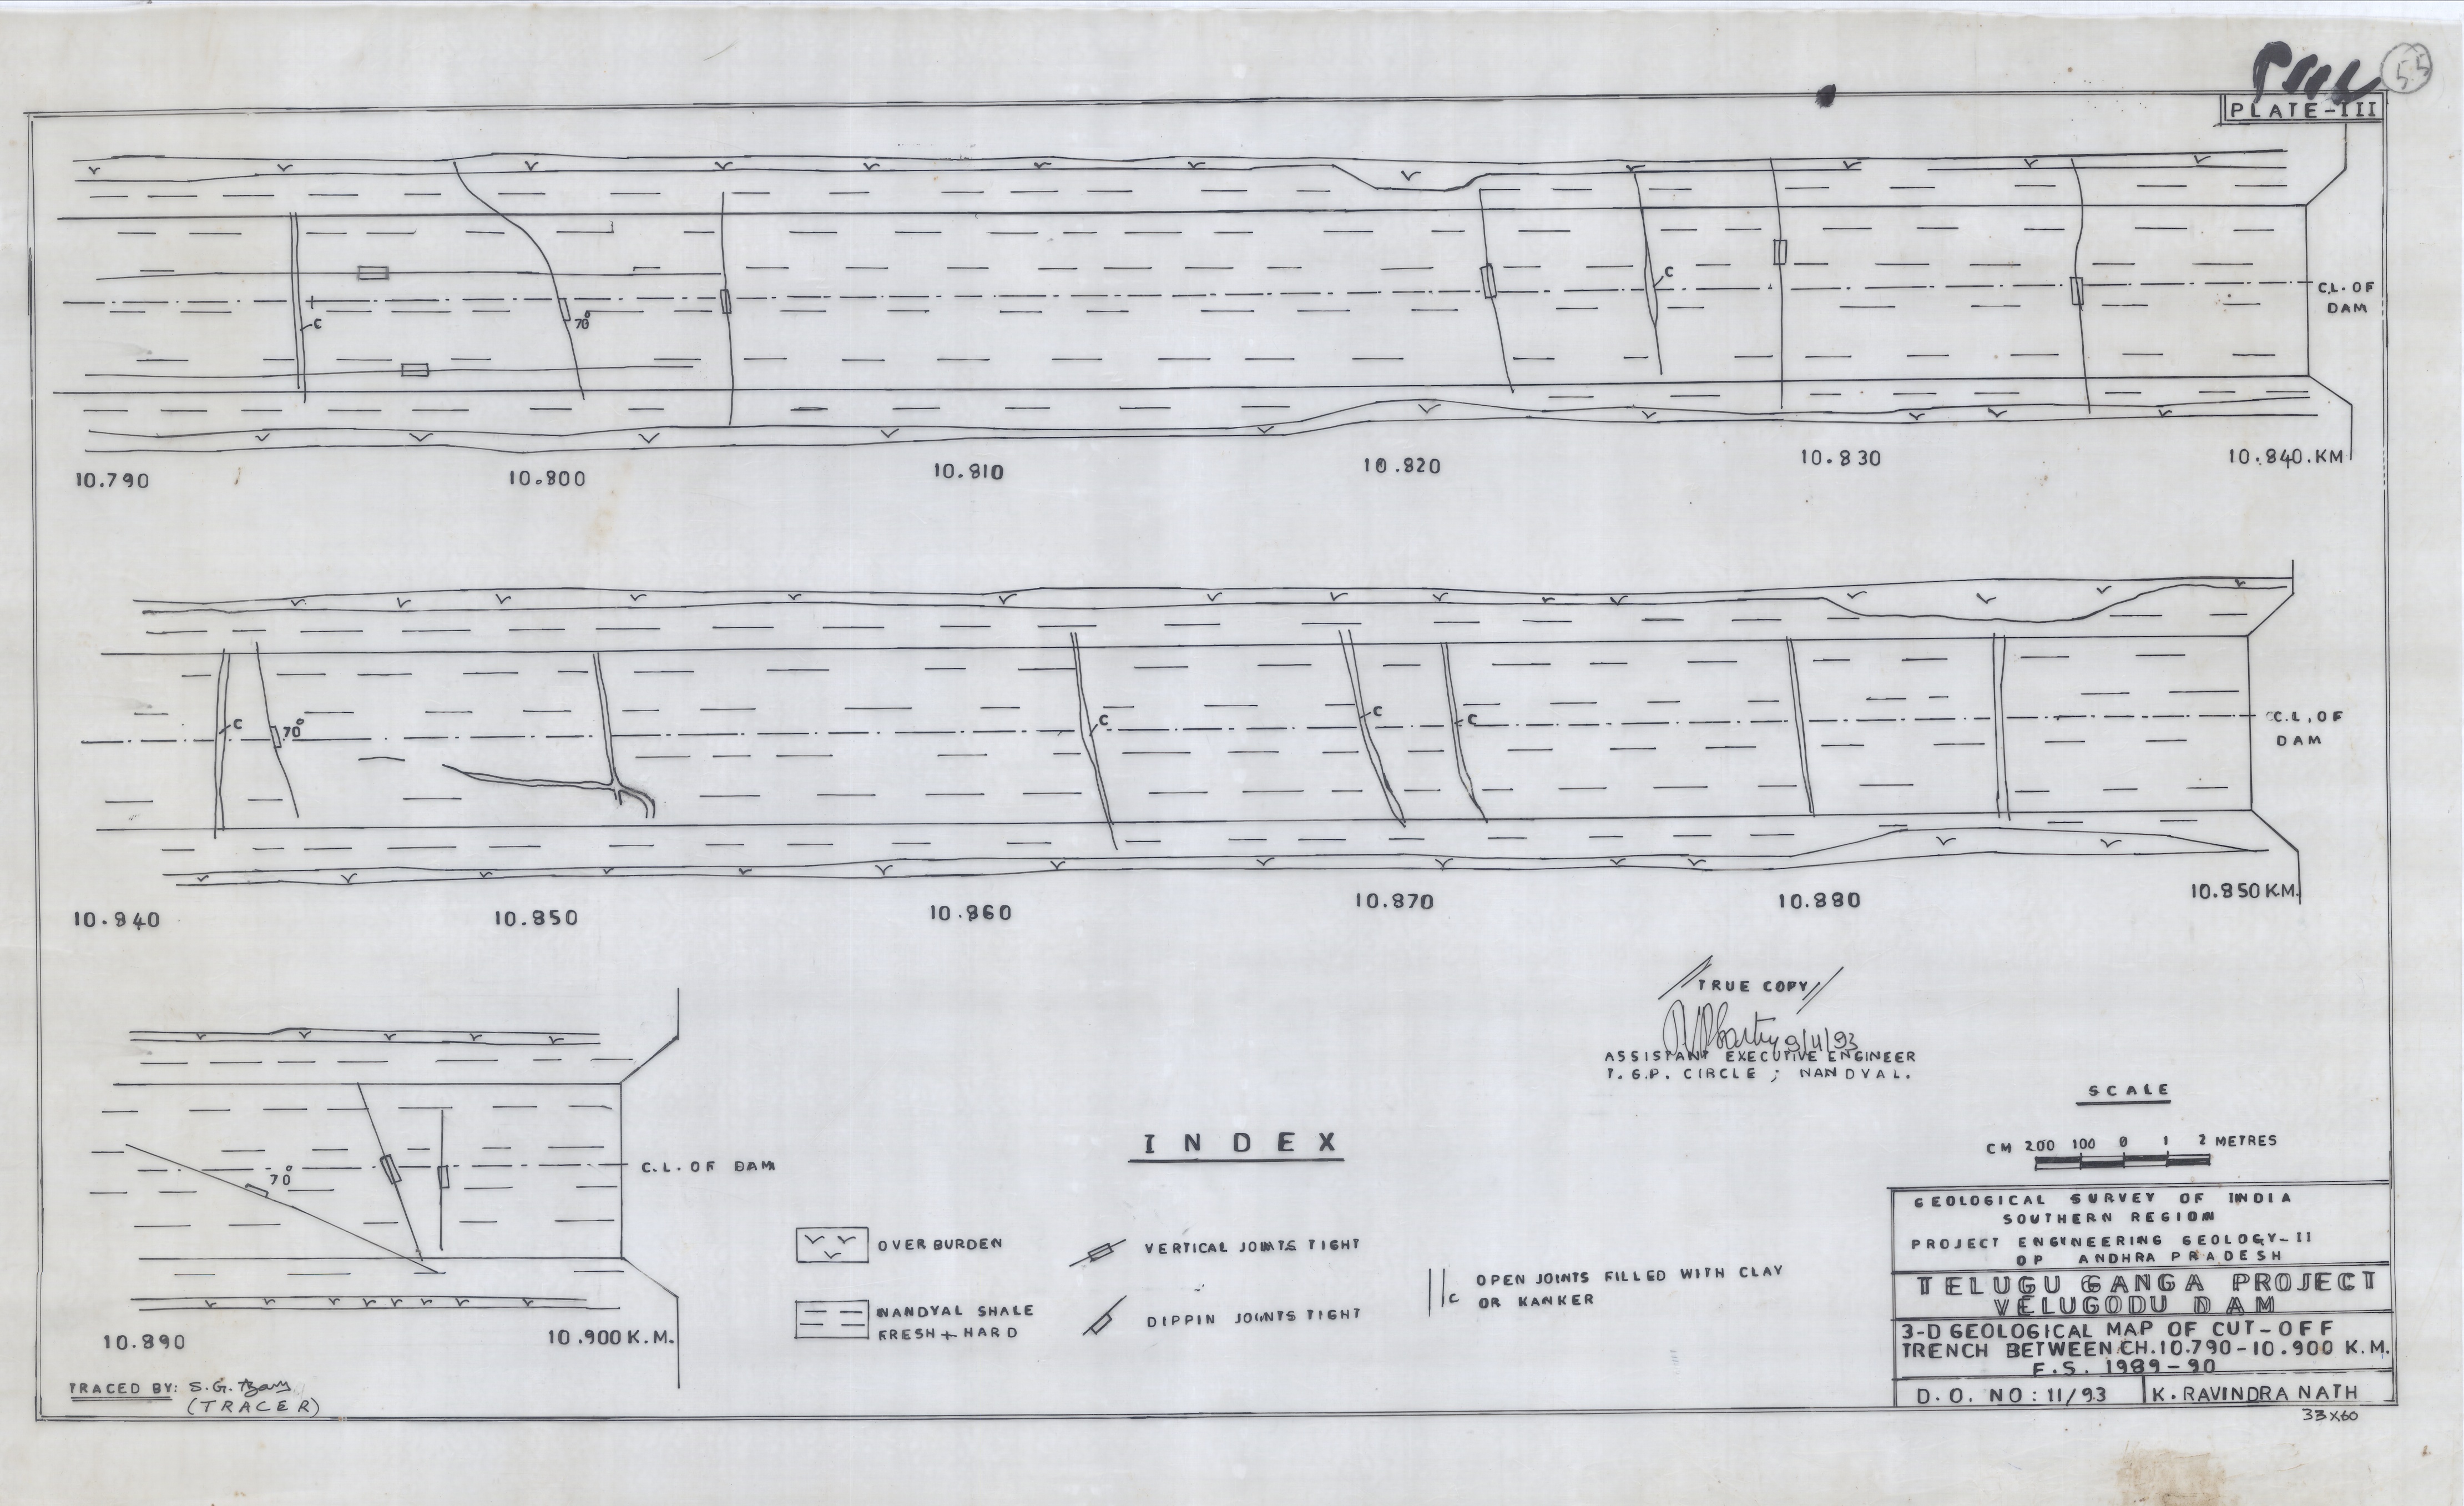 55
PLATE-III
C
70°
C
C.L. OF
DAM
10.790
10.800
10.810
10.820
10.830
10.840.KM
C
70°
C
C
C
C.L. OF
DAM
10.840
10.850
10.860
10.870
10.880
10.850 K.M.
//TRUE COPY//
9/11/93
ASSISTANT EXECUTIVE ENGINEER
T.G.P. CIRCLE ; NANDYAL.
70°
C.L. OF DAM
10.890
10.900 K.M.
SCALE
CM 200 100 0 1 2 METRES
INDEX
OVER BURDEN
VERTICAL JOINTS TIGHT
NANDYAL SHALE
FRESH + HARD
DIPPIN JOINTS TIGHT
C
OPEN JOINTS FILLED WITH CLAY
OR KANKER
GEOLOGICAL SURVEY OF INDIA
SOUTHERN REGION
PROJECT ENGINEERING GEOLOGY-II
OP ANDHRA PRADESH
TELUGU GANGA PROJECT
VELUGODU DAM
3-D GEOLOGICAL MAP OF CUT-OFF
TRENCH BETWEEN CH.10.790-10.900 K.M.
F.S. 1989-90
D.O. NO: 11/93
K. RAVINDRA NATH
33X60
TRACED BY: S.G.
(TRACER)